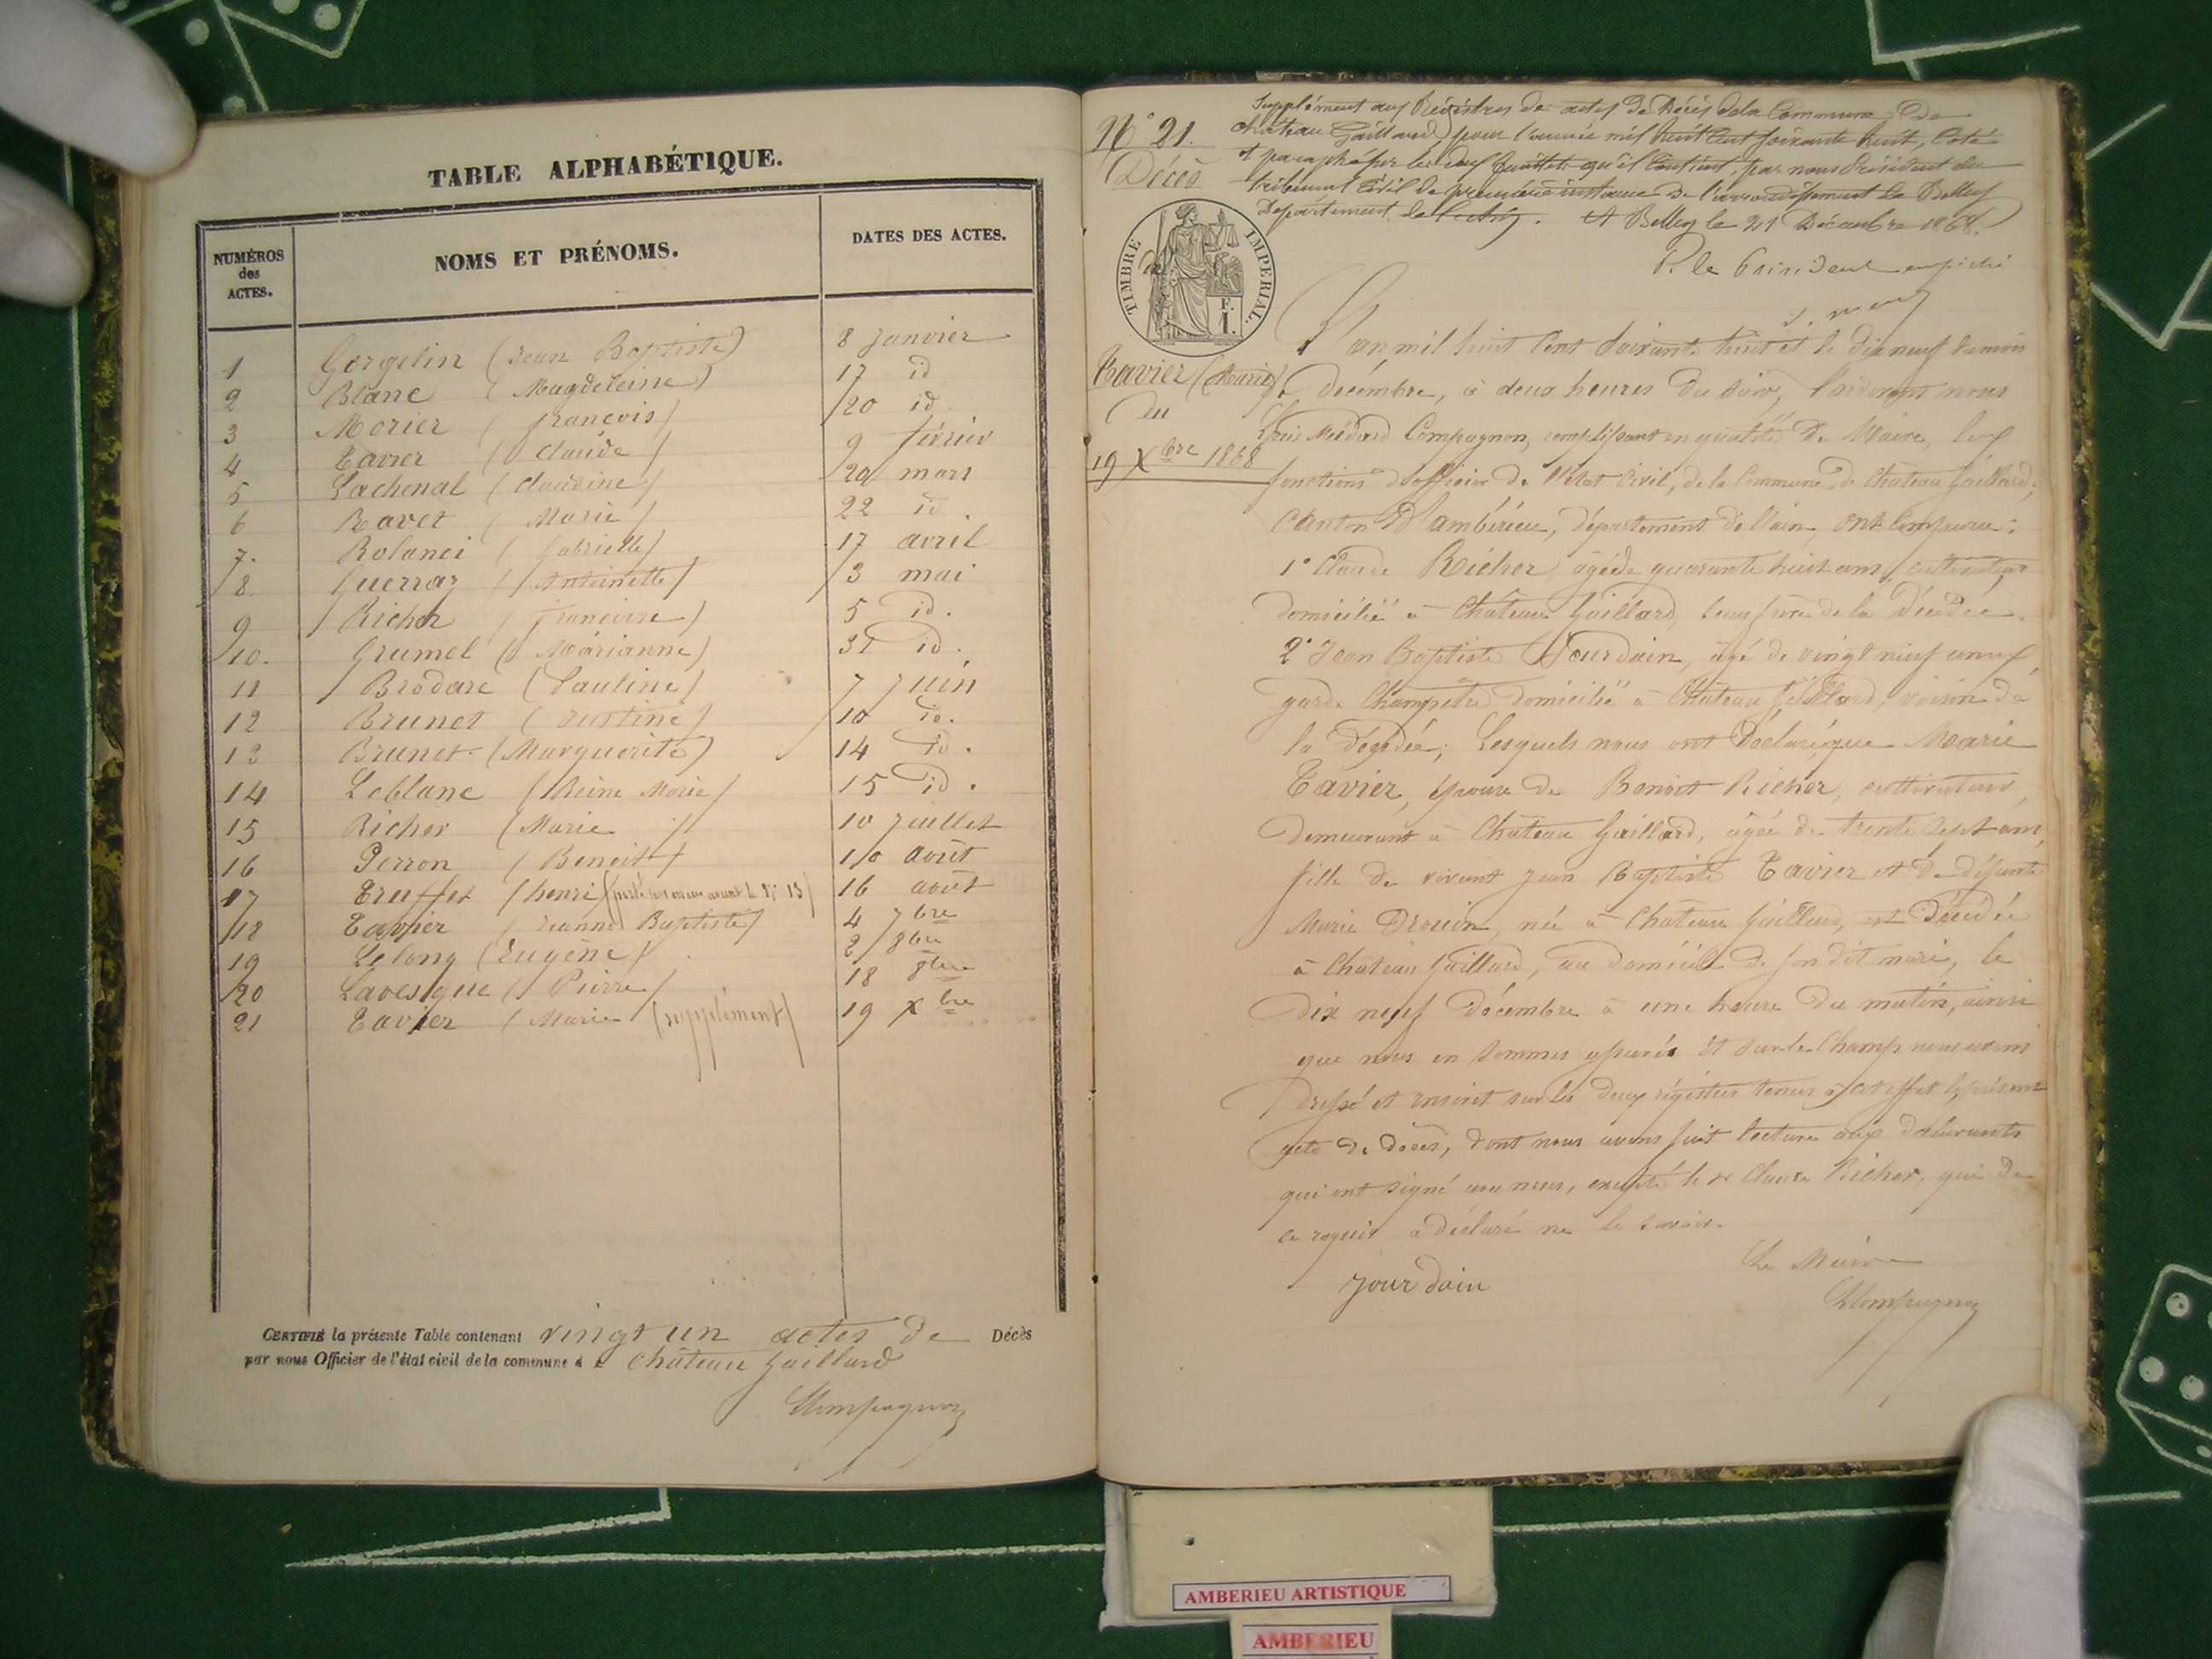 TABLE ALPHABÉTIQUE.
NUMÉROS des ACTES. NOMS ET PRÉNOMS. DATES DES ACTES.
1 Gorgelin (Jean Baptiste) 8 Janvier
2 Blanc (Magdeleine) 17 id
3 Morier (françois) 20 id
4 Tavier (Claude) 9 février
5 Lachenal (Claudine) 20 mars
6 Ravet (Marie) 22 id.
7. Rolanci (Gabrielle) 17 avril
8. Guerraz (Antoinette) 3 mai
9 Richer (Francoise) 5 id.
10. Grumel (Marianne) 31 id.
11 Brodare (Pauline) 7 Juin
12 Brunet (Justine) 10 id.
13 Brunet (Marguerite) 14 id.
14 Leblanc (Reine Marie) 15 id.
15 Richer (Marie) 10 Juillet
16 Perron (Benoit) 10 Août
17 Truffet (henri) (porté par erreur avant le N° 13) 16 août
18 Tavier (Jeanne Baptiste) 4 7bre
19 Lelong (Eugène) 2 8bre
20 Lavesque (Pierre) 18 8bre
21 Tavier (Marie) (supplément) 19 xbre
CERTIFIÉ la présente Table contenant vingt un actes de Décès
par nous Officier de l'état civil de la commune de Château Gaillard
LCompagnon
N° 21.
Décès
Supplément aux Régistres de actes de Décès de la Commune de
Château Gaillard, pour l'année mil huit cent soixante huit, coté
et paraphé par les deux feuillets qu'il contient, par nous Président du
tribunal Civil de première instance de l'arrondissement de Belley
Département de l'ain. A Belley le 21 Décembre 1868.
P. le Président empêché
TIMBRE IMPERIAL
F. 1.
Tavier (Marie)
du
19 Xbre 1868
L'an mil huit cent soixante huit et le dix neuf du mois
de décembre, à deux heures du soir, Pardevant nous
Louis Médard Compagnon, remplissant en qualité de Maire, les
fonctions d'officier de l'état Civil, de la Commune de Château Gaillard,
Canton d'ambérieu, département de l'ain, ont comparu:
1° Claude Richer, âgé de quarante huit ans, cultivateur
domicilié à Château Gaillard, beau frère de la Décédée.
2° Jean Baptiste Jourdain, âgé de vingt neuf ans,
garde Champêtre domicilié à Château Gaillard, voisin de
la Décédée; Lesquels nous ont Déclaré que Marie
Tavier, épouse de Benoit Richer, cultivateur,
demeurant à Château Gaillard, âgée de trente sept ans,
fille de vivant Jean Baptiste Tavier et de défunte
Marie Drouin, née à Château Gaillard, est Décédée
à Château Gaillard, au domicile de son dit mari, le
dix neuf Décembre à une heure du matin, ainsi
que nous en sommes assurés et sur le Champ nous avons
dressé et inscrit sur les deux régistres tenus à cet effet le présent
acte de décès, dont nous avons fait lecture aux déclarants
qui ont signé avec nous, excepté le sr Claude Richer, qui de
ce requis a déclaré ne le savoir.
Jourdain
Le Maire
LCompagnon
AMBERIEU ARTISTIQUE
AMBERIEU